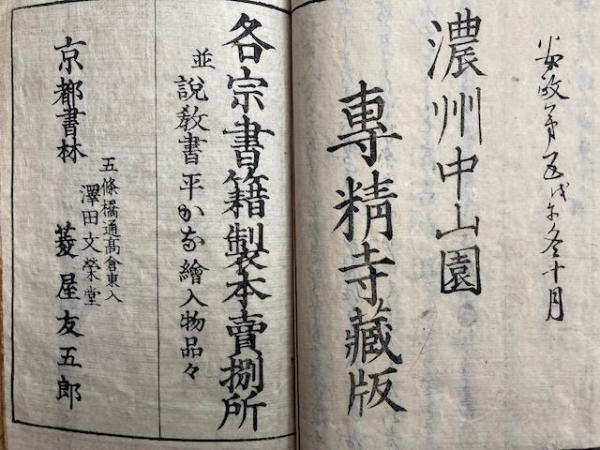 安政第五戊午冬十月
濃州中山園
專精寺藏版
各宗書籍製本賣捌所
並說教書平かな繪入物品々
五條橋通高倉東入
澤田文榮堂
京都書林 菱屋友五郎